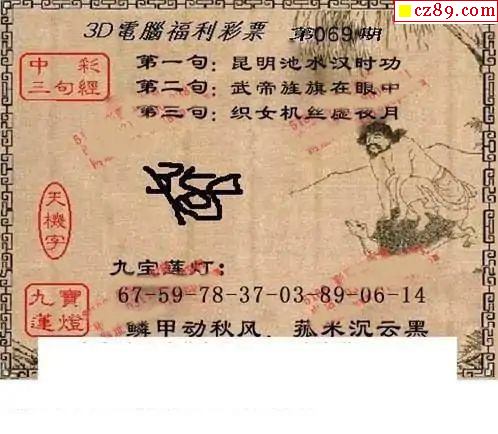 cz89.com
3D電腦福利彩票 第069期
中彩
三句經
第一句：昆明池水汉时功
第二句：武帝旌旗在眼中
第三句：织女机丝虚夜月
天機字
九宝莲灯：
67-59-78-37-03-89-06-14
九寶蓮燈
鳞甲动秋风，菰米沉云黑